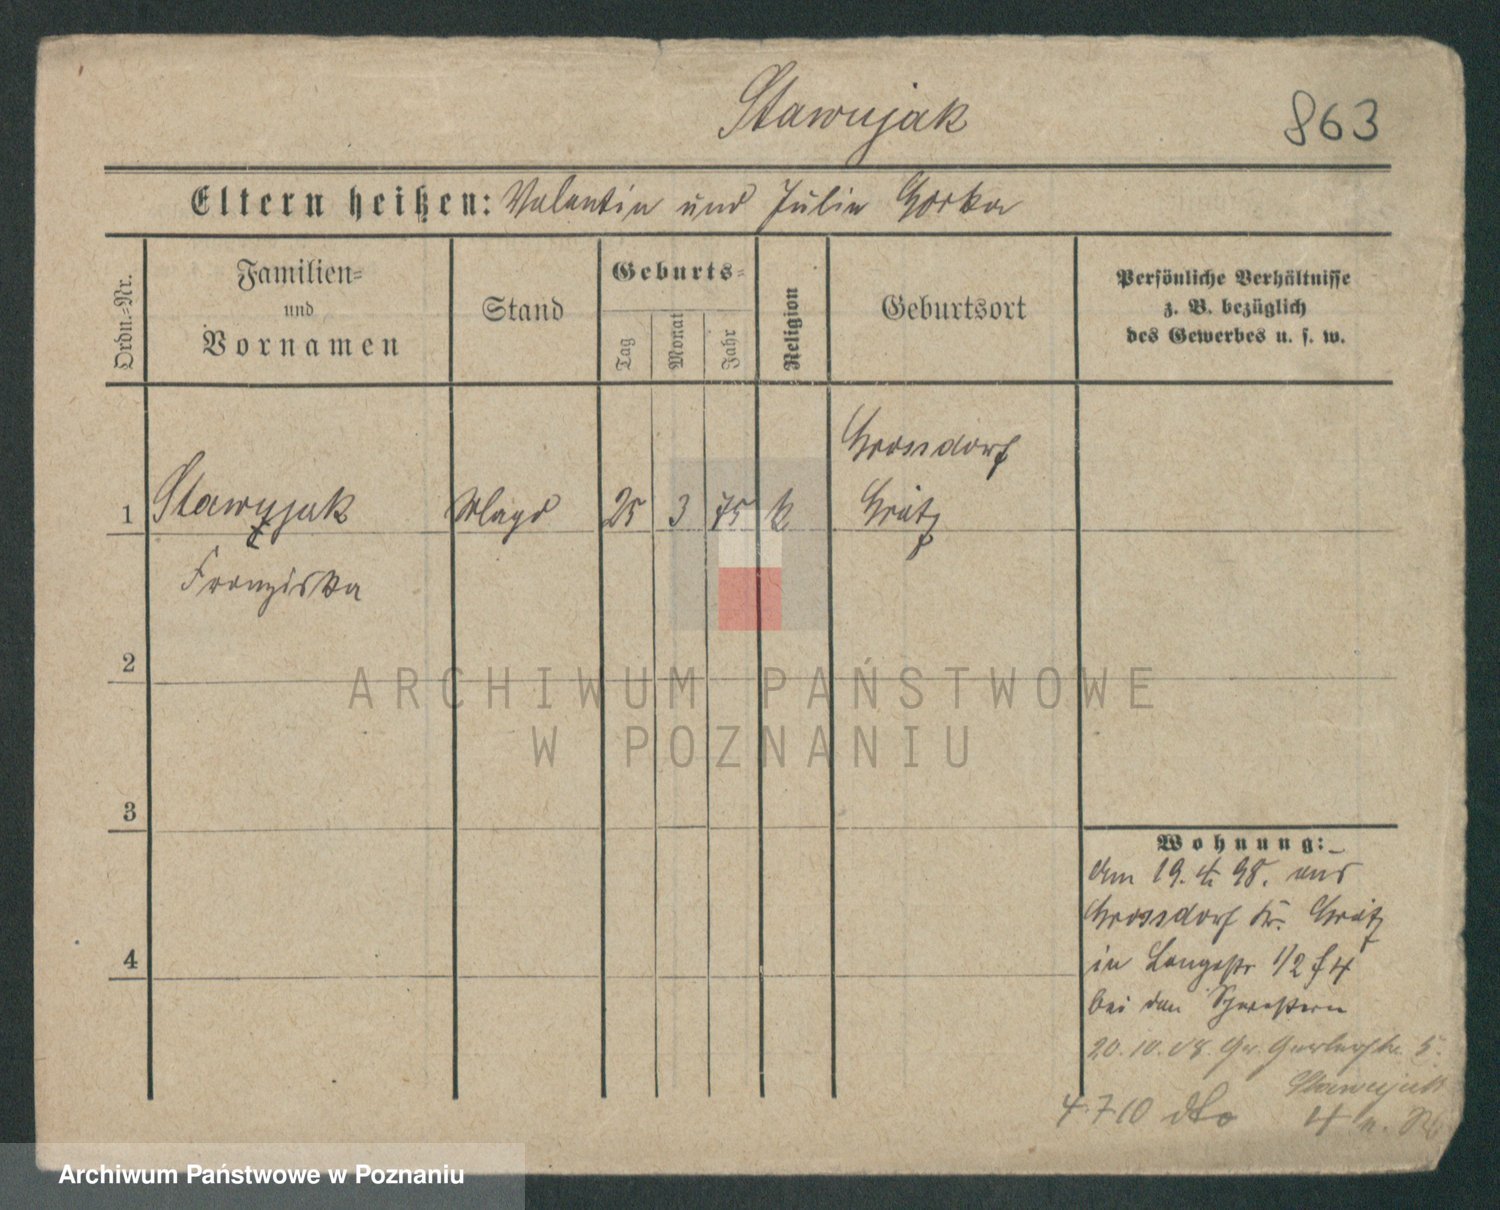 Stawujak
863
Eltern heißen: Valentin und Julie Gorka
Ordn.=Nr.
Familien=
und
Vornamen
Stand
Geburts=
Tag
Monat
Jahr
Religion
Geburtsort
Persönliche Verhältnisse
z. B. bezüglich
des Gewerbes u. s. w.
Grossdorf
1 Stawujak Magd 25 3 75 k Grätz
Franziska
2
3
4
ARCHIWUM PAŃSTWOWE
W POZNANIU
Wohnung:
am 19. 4. 98. aus
Grossdorf Kr. Grätz
in Langestr 1/2 f 4
bei den Schwestern
20. 10. 08. Gr. Gerberstr. 5.
Stawujak
4. 7 10 dto
Archiwum Państwowe w Poznaniu